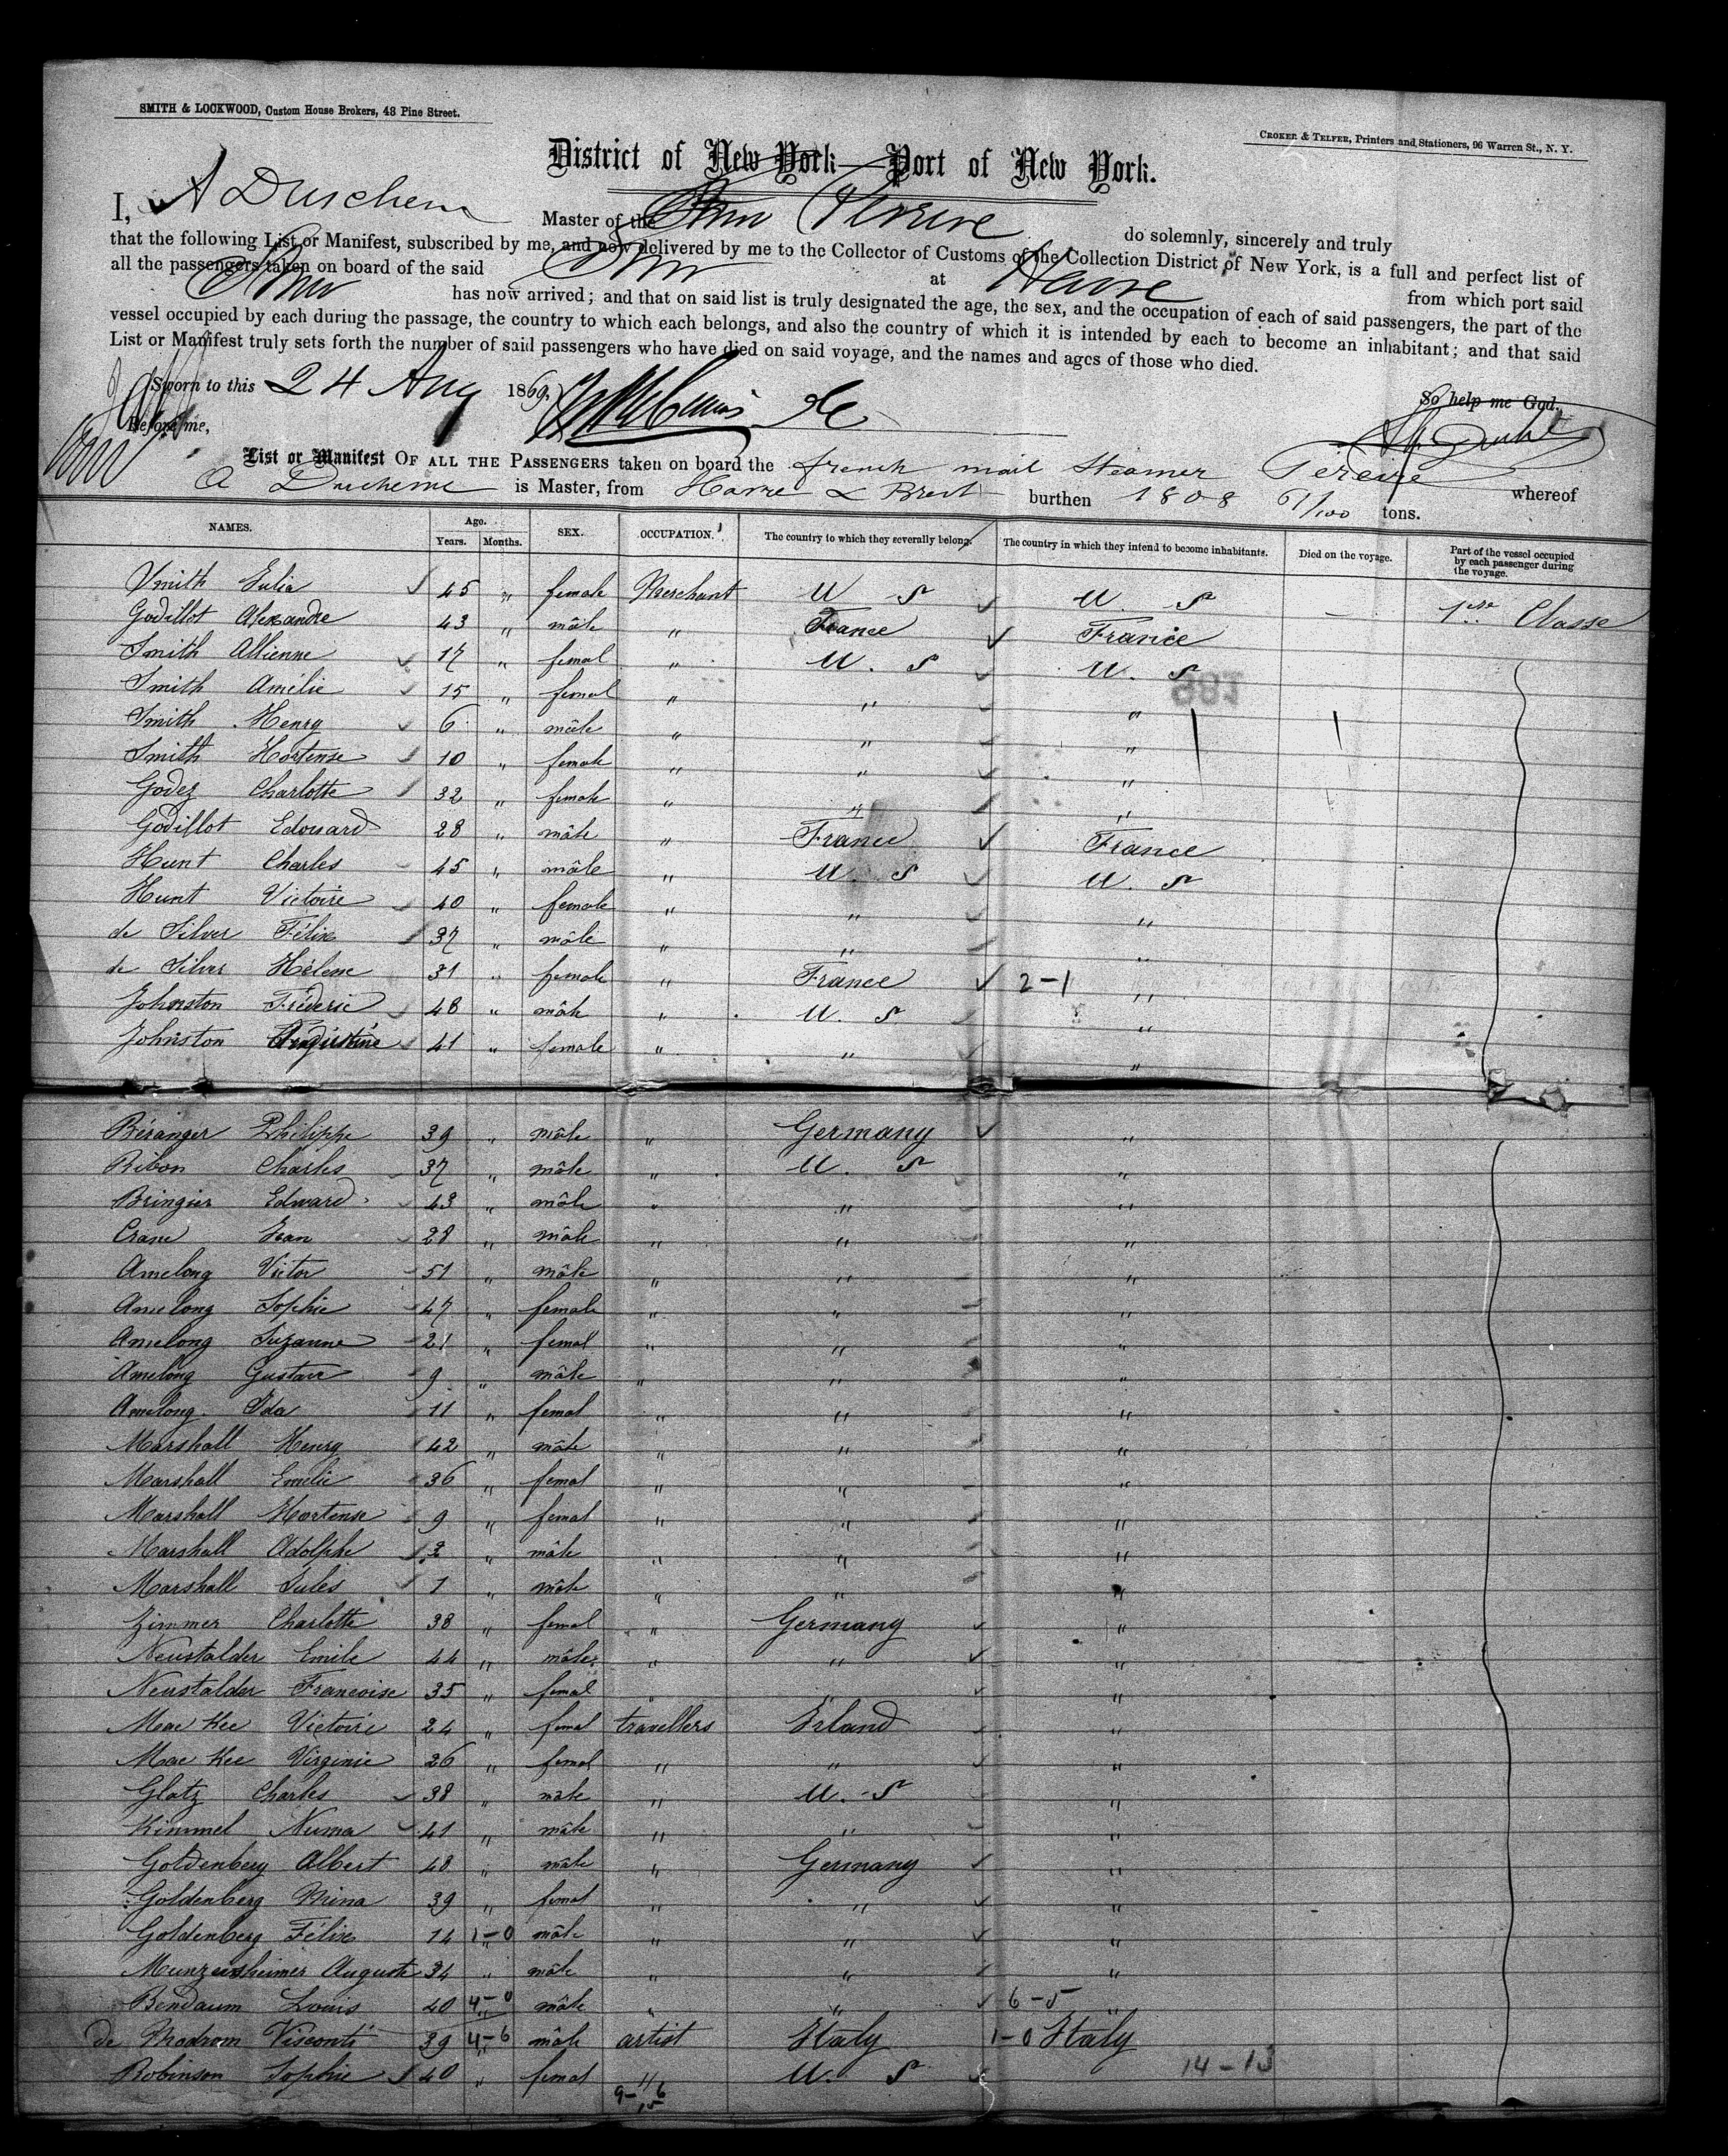 SMITH & LOCKWOOD, Custom House Brokers, 43 Pine Street.
CROKER & TELFER, Printers and Stationers, 96 Warren St., N. Y.
District of New York—Port of New York.
I, A Duschem Master of the Stmr Pereire do solemnly, sincerely and truly
that the following List or Manifest, subscribed by me, and now delivered by me to the Collector of Customs of the Collection District of New York, is a full and perfect list of
all the passengers taken on board of the said Stmr at Havre from which port said
Stmr has now arrived; and that on said list is truly designated the age, the sex, and the occupation of each of said passengers, the part of the
vessel occupied by each during the passage, the country to which each belongs, and also the country of which it is intended by each to become an inhabitant; and that said
List or Manifest truly sets forth the number of said passengers who have died on said voyage, and the names and ages of those who died.
Sworn to this 24 Aug 1869
So help me God.
Before me,
List or Manifest OF ALL THE PASSENGERS taken on board the french mail Steamer Pereire whereof
A Ducheme is Master, from Havre & Brest burthen 1808 61/100 tons.
NAMES. Age. Years. Months. SEX. OCCUPATION. The country to which they severally belong. The country in which they intend to become inhabitants. Died on the voyage. Part of the vessel occupied by each passenger during the voyage.
Smith Julia 45 " female Merchant U S U. S 1ere Classe
Godillot Alexandre 43 " mâle " France France
Smith Allienne 17 " femal " U. S U. S
Smith Amélie 15 " femal " " "
Smith Henry 6 " mâle " " "
Smith Hortense 10 " female " " "
Godez Charlotte 32 " female " " "
Godillot Edouard 28 " mâle " France France
Hunt Charles 45 " mâle " U. S U. S
Hunt Victoire 40 " female " " "
de Silver Félix 37 " mâle " " "
de Silver Hélene 31 " female " France 2-1 "
Johnston Fréderic 48 " mâle " U. S "
Johnston Augustine 41 " female " " "
Béranger Philippe 39 " mâle " Germany "
Ribon Charles 37 " mâle " U. S "
Bringier Edward 43 " mâle " " "
Crane Jean 28 " mâle " " "
Amelong Victor 51 " mâle " " "
Amelong Sophie 47 " female " " "
Amelong Suzanne 21 " femal " " "
Amelong Gustave 9 " mâle " " "
Amelong Ida 11 " femal " " "
Marshall Henry 42 " mâle " " "
Marshall Emelie 36 " femal " " "
Marshall Hortense 9 " femal " " "
Marshall Adolphe 2 " mâle " " "
Marshall Jules 1 " mâle " " "
Zimmer Charlotte 38 " femal " Germany "
Neustalder Emile 44 " mâle " " "
Neustalder Francoise 35 " femal " " "
Mac Kee Victoire 24 " femal travellers Irland "
Mac Kee Virginie 26 " femal " " "
Glatz Charles 38 " mâle " U. S "
Kimmel Numa 41 " mâle " " "
Goldenberg Albert 48 " mâle " Germany "
Goldenberg Mina 39 " femal " "
Goldenberg Félix 14 1-0 " mâle " " "
Munzersheimer Auguste 34 " mâle " " "
Bendaum Louis 40 4-0 " mâle " " 6-5 "
de Modrom Visconti 39 4-6 " mâle artist Italy 1-0 Italy
Robinson Sophie 40 " femal " U. S 14-13